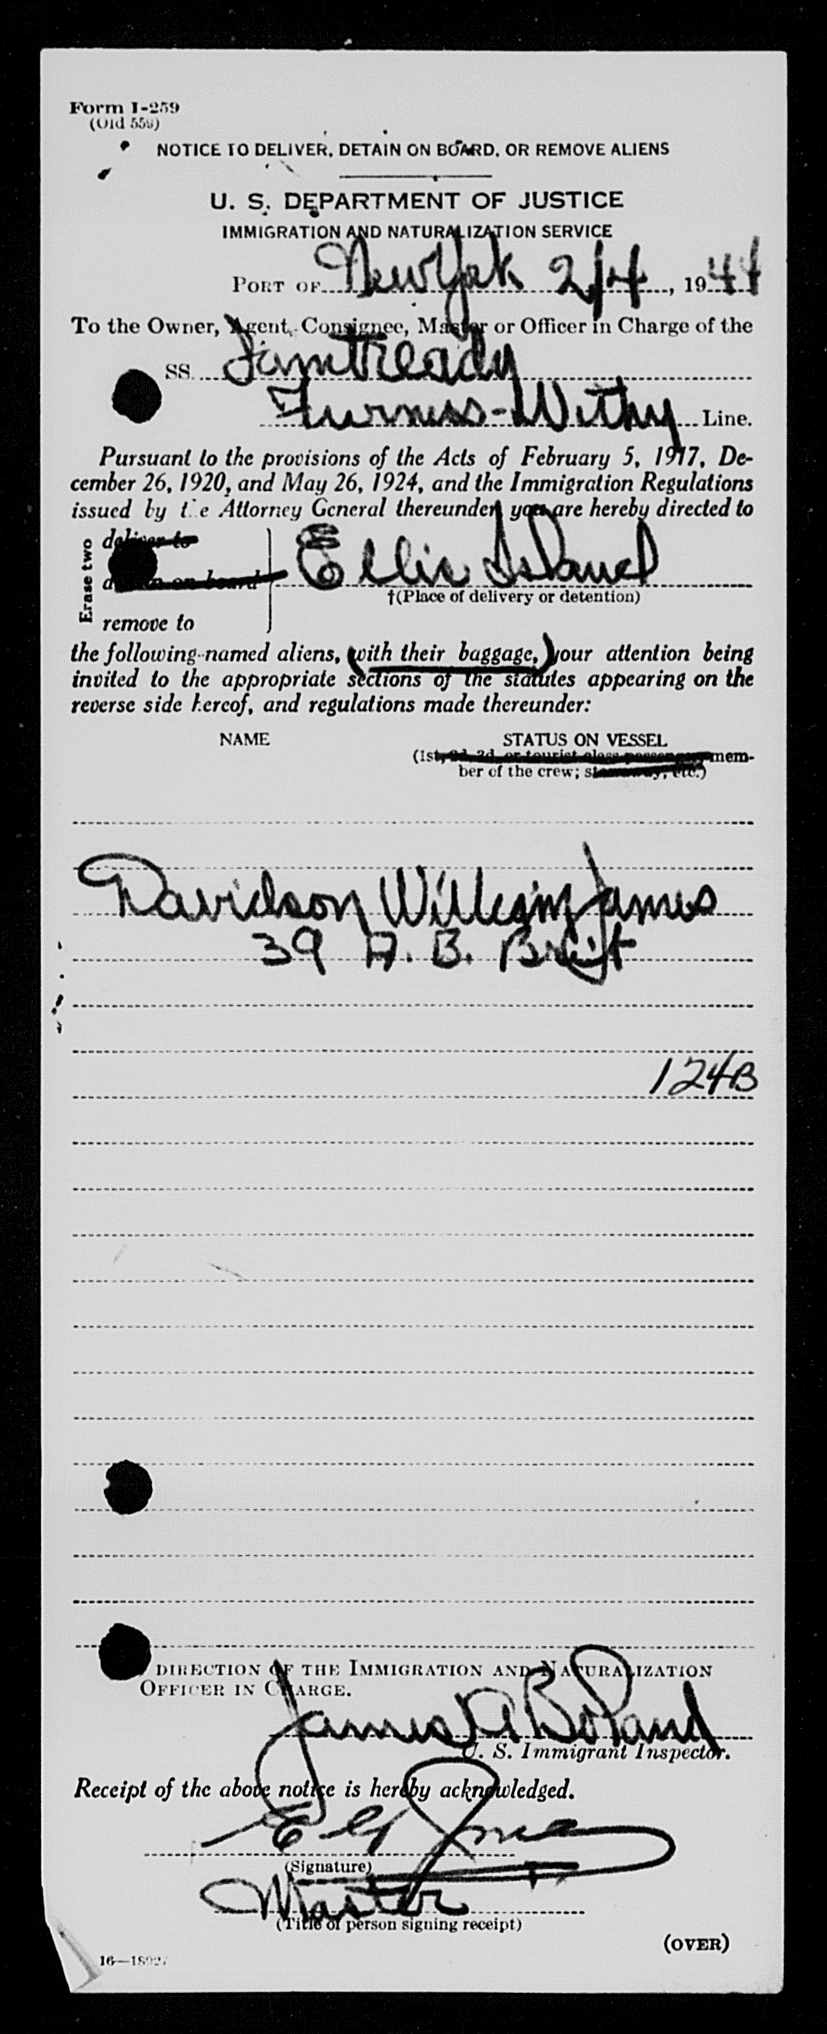 Form I-259
(Old 559)
NOTICE TO DELIVER, DETAIN ON BOARD, OR REMOVE ALIENS
U. S. DEPARTMENT OF JUSTICE
IMMIGRATION AND NATURALIZATION SERVICE
PORT OF New York 2/4, 1944
To the Owner, Agent, Consignee, Master or Officer in Charge of the
SS.
Furness-Withy Line.
Pursuant to the provisions of the Acts of February 5, 1917, De-
cember 26, 1920, and May 26, 1924, and the Immigration Regulations
issued by the Attorney General thereunder, you are hereby directed to
deliver to
on board Ellis Island
Erase two
†(Place of delivery or detention)
remove to
the following-named aliens, (with their baggage,) your attention being
invited to the appropriate sections of the statutes appearing on the
reverse side hereof, and regulations made thereunder:
NAME STATUS ON VESSEL
(1st, 2d, 3d, or tourist class passenger, mem-
ber of the crew; stowaway, etc.)
Davidson William James
39 A. B. Brit
124B
DIRECTION OF THE IMMIGRATION AND NATURALIZATION
OFFICER IN CHARGE.
James A Boland
U. S. Immigrant Inspector.
Receipt of the above notice is hereby acknowledged.
(Signature)
Master
(Title of person signing receipt)
(OVER)